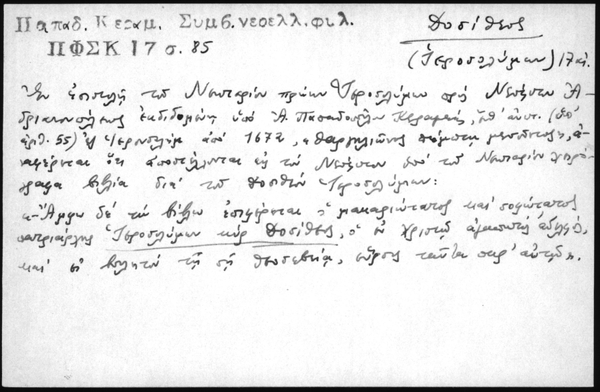 Παπαδ. Κεραμ. Συμβ. νεοελλ. φιλ.
ΠΦΣΚ 17 σ. 85
Δοσίθεος
(Ἱεροσολύμων) 17 αἰ.
Ἐν ἐπιστολῇ τοῦ Νεκταρίου πρώην Ἱεροσολύμων πρὸς Νεόφυτον Ἀ-
δριανουπόλεως ἐκδιδομένῃ ὑπὸ Ἀ. Παπαδοπούλου Κεραμέως, ἔνθ' ἀνωτ. (ὑπ'
ἀριθ. 55) ἐξ Ἱερουσαλὴμ ἀπὸ 1672, "θαργηλιῶνος πέμπτῃ ἀ-
ναφέρεται ὅτι ἀποστέλλονται εἰς τὸν Νεόφυτον ὑπὸ τοῦ Νεκταρίου χειρό-
γραφα βιβλία διὰ τοῦ Δοσιθέου Ἱεροσολύμων:
"Ἄμφω δὲ τὼ βίβλω ἐπιφέρεται ὁ μακαριώτατος καὶ σοφώτατος
πατριάρχης Ἱεροσολύμων κὺρ Δοσίθεος, ὁ ἐν Χριστῷ ἀγαπητὸς ἀδελφός,
καὶ εἰ βουλητὸν τῇ σῇ θεοσεβείᾳ, εὕρῃς ταῦτα παρ' αὐτοῦ".